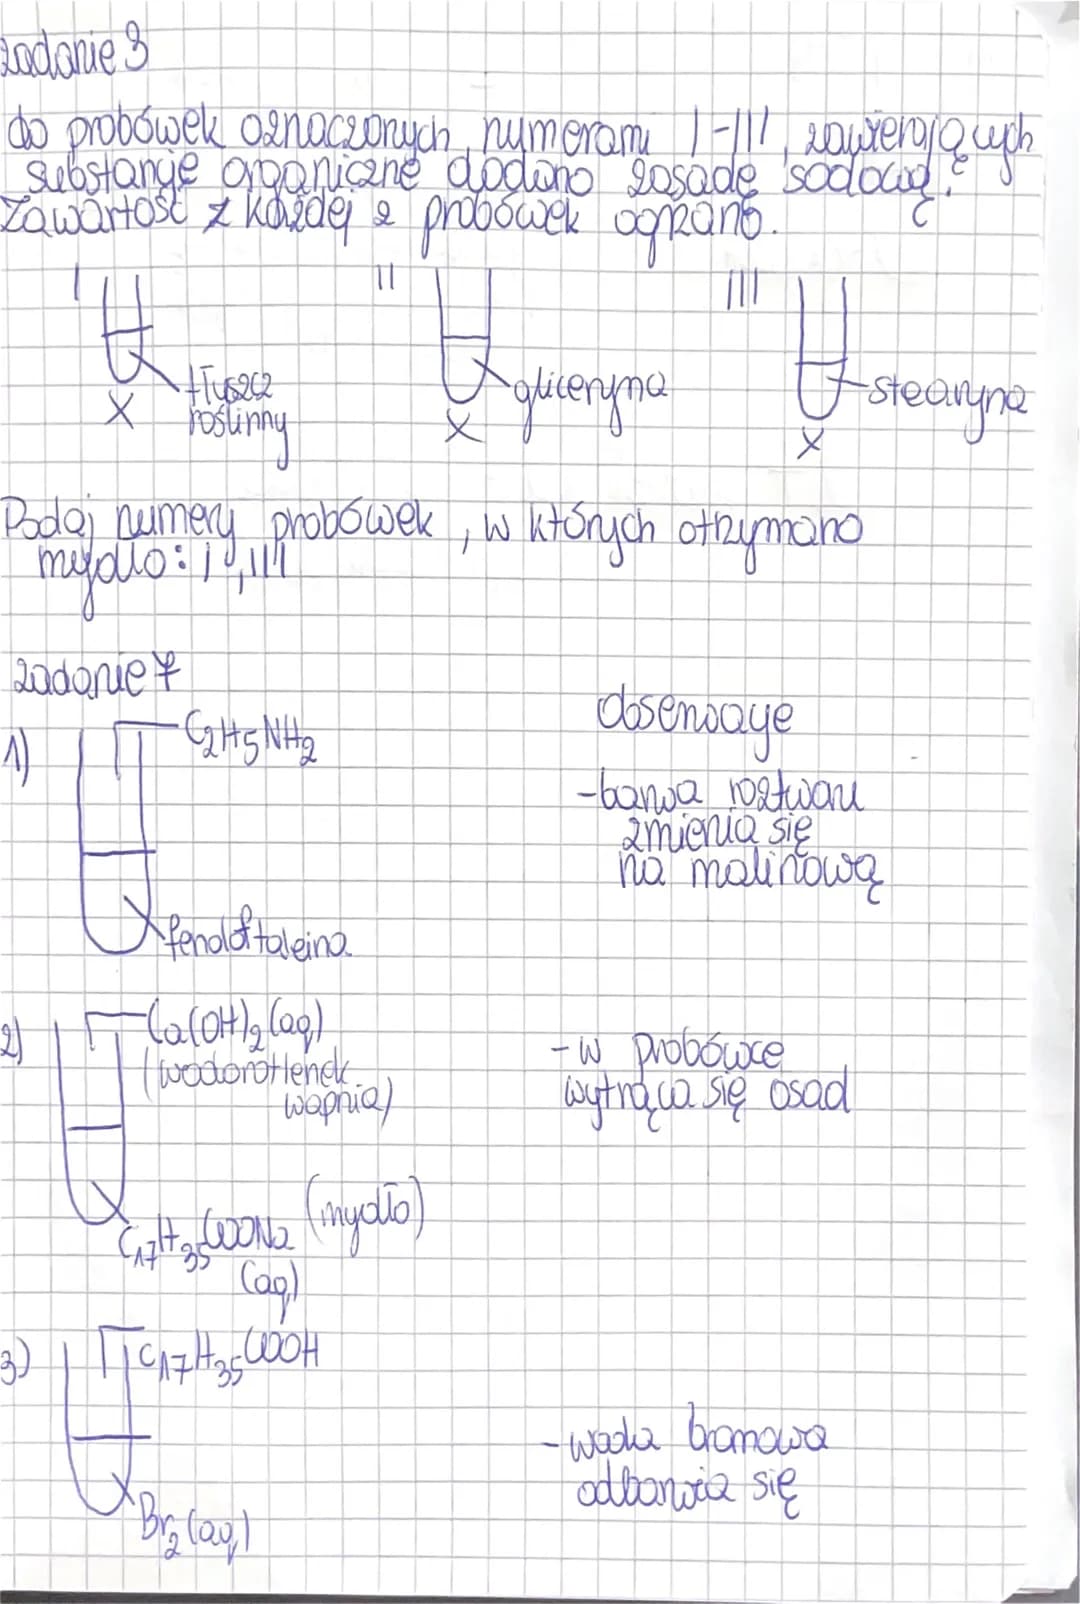 zadanie 3
do probówek oznaczonych numerami I-III, zawierających
substancje organiczne dodano zasadę sodową.
Zawartość z każdej z probówek ogrzano.
I II III
X tłuszcz roślinny
X gliceryna
X stearyna
Podaj numery probówek, w których otrzymano
mydło: I, III
zadanie 7
obserwacje
1) C2H5NH2
-barwa roztworu
zmienia się
na malinową
fenoloftaleina
2) Ca(OH)2(aq)
(wodorotlenek
wapnia)
-w probówce
wytrąca się osad
C17H35COONa (mydło)
(aq)
3) C17H35COOH
-woda bromowa
odbarwia się
Br2(aq)